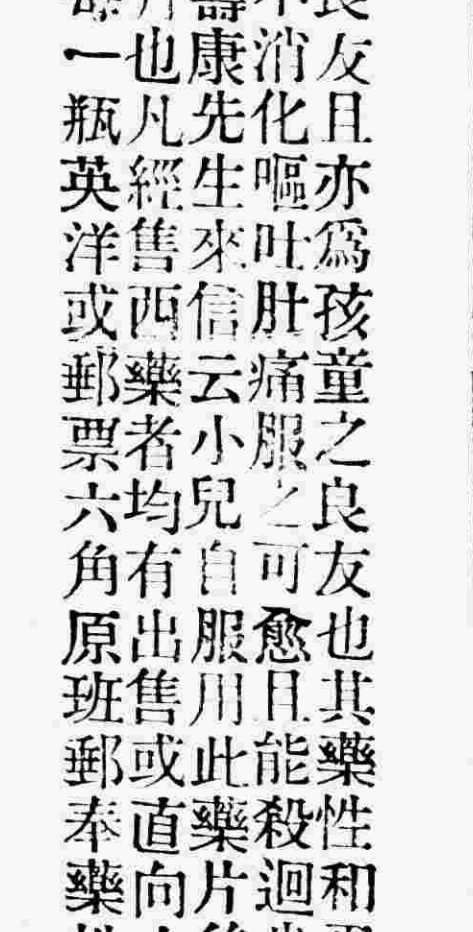 友且亦爲孩童之良友也其藥性和
消化嘔吐肚痛服之可愈且能殺迴
康先生來信云小兒自服用此藥片
也凡經售西藥者均有出售或直向
一瓶英洋或郵票六角原班郵奉藥